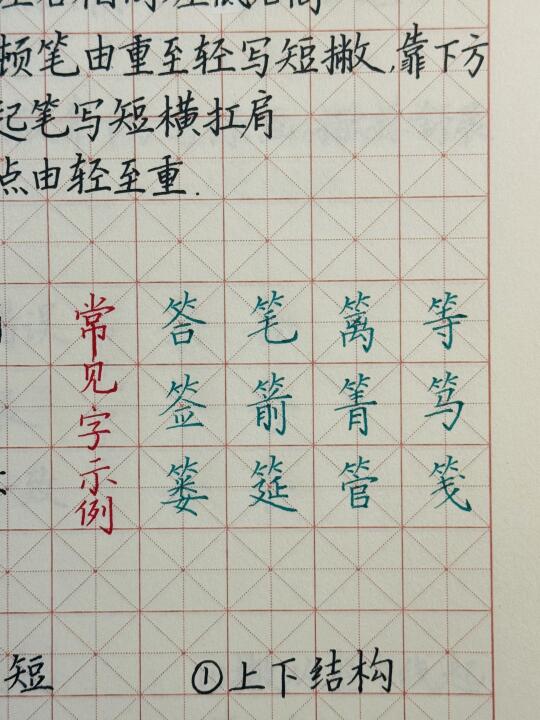 顿笔由重至轻写短撇,靠下方
起笔写短横扛肩
点由轻至重.
常见字示例
答笔篱等
签箭箐笃
篓筵管笺
短
①上下结构